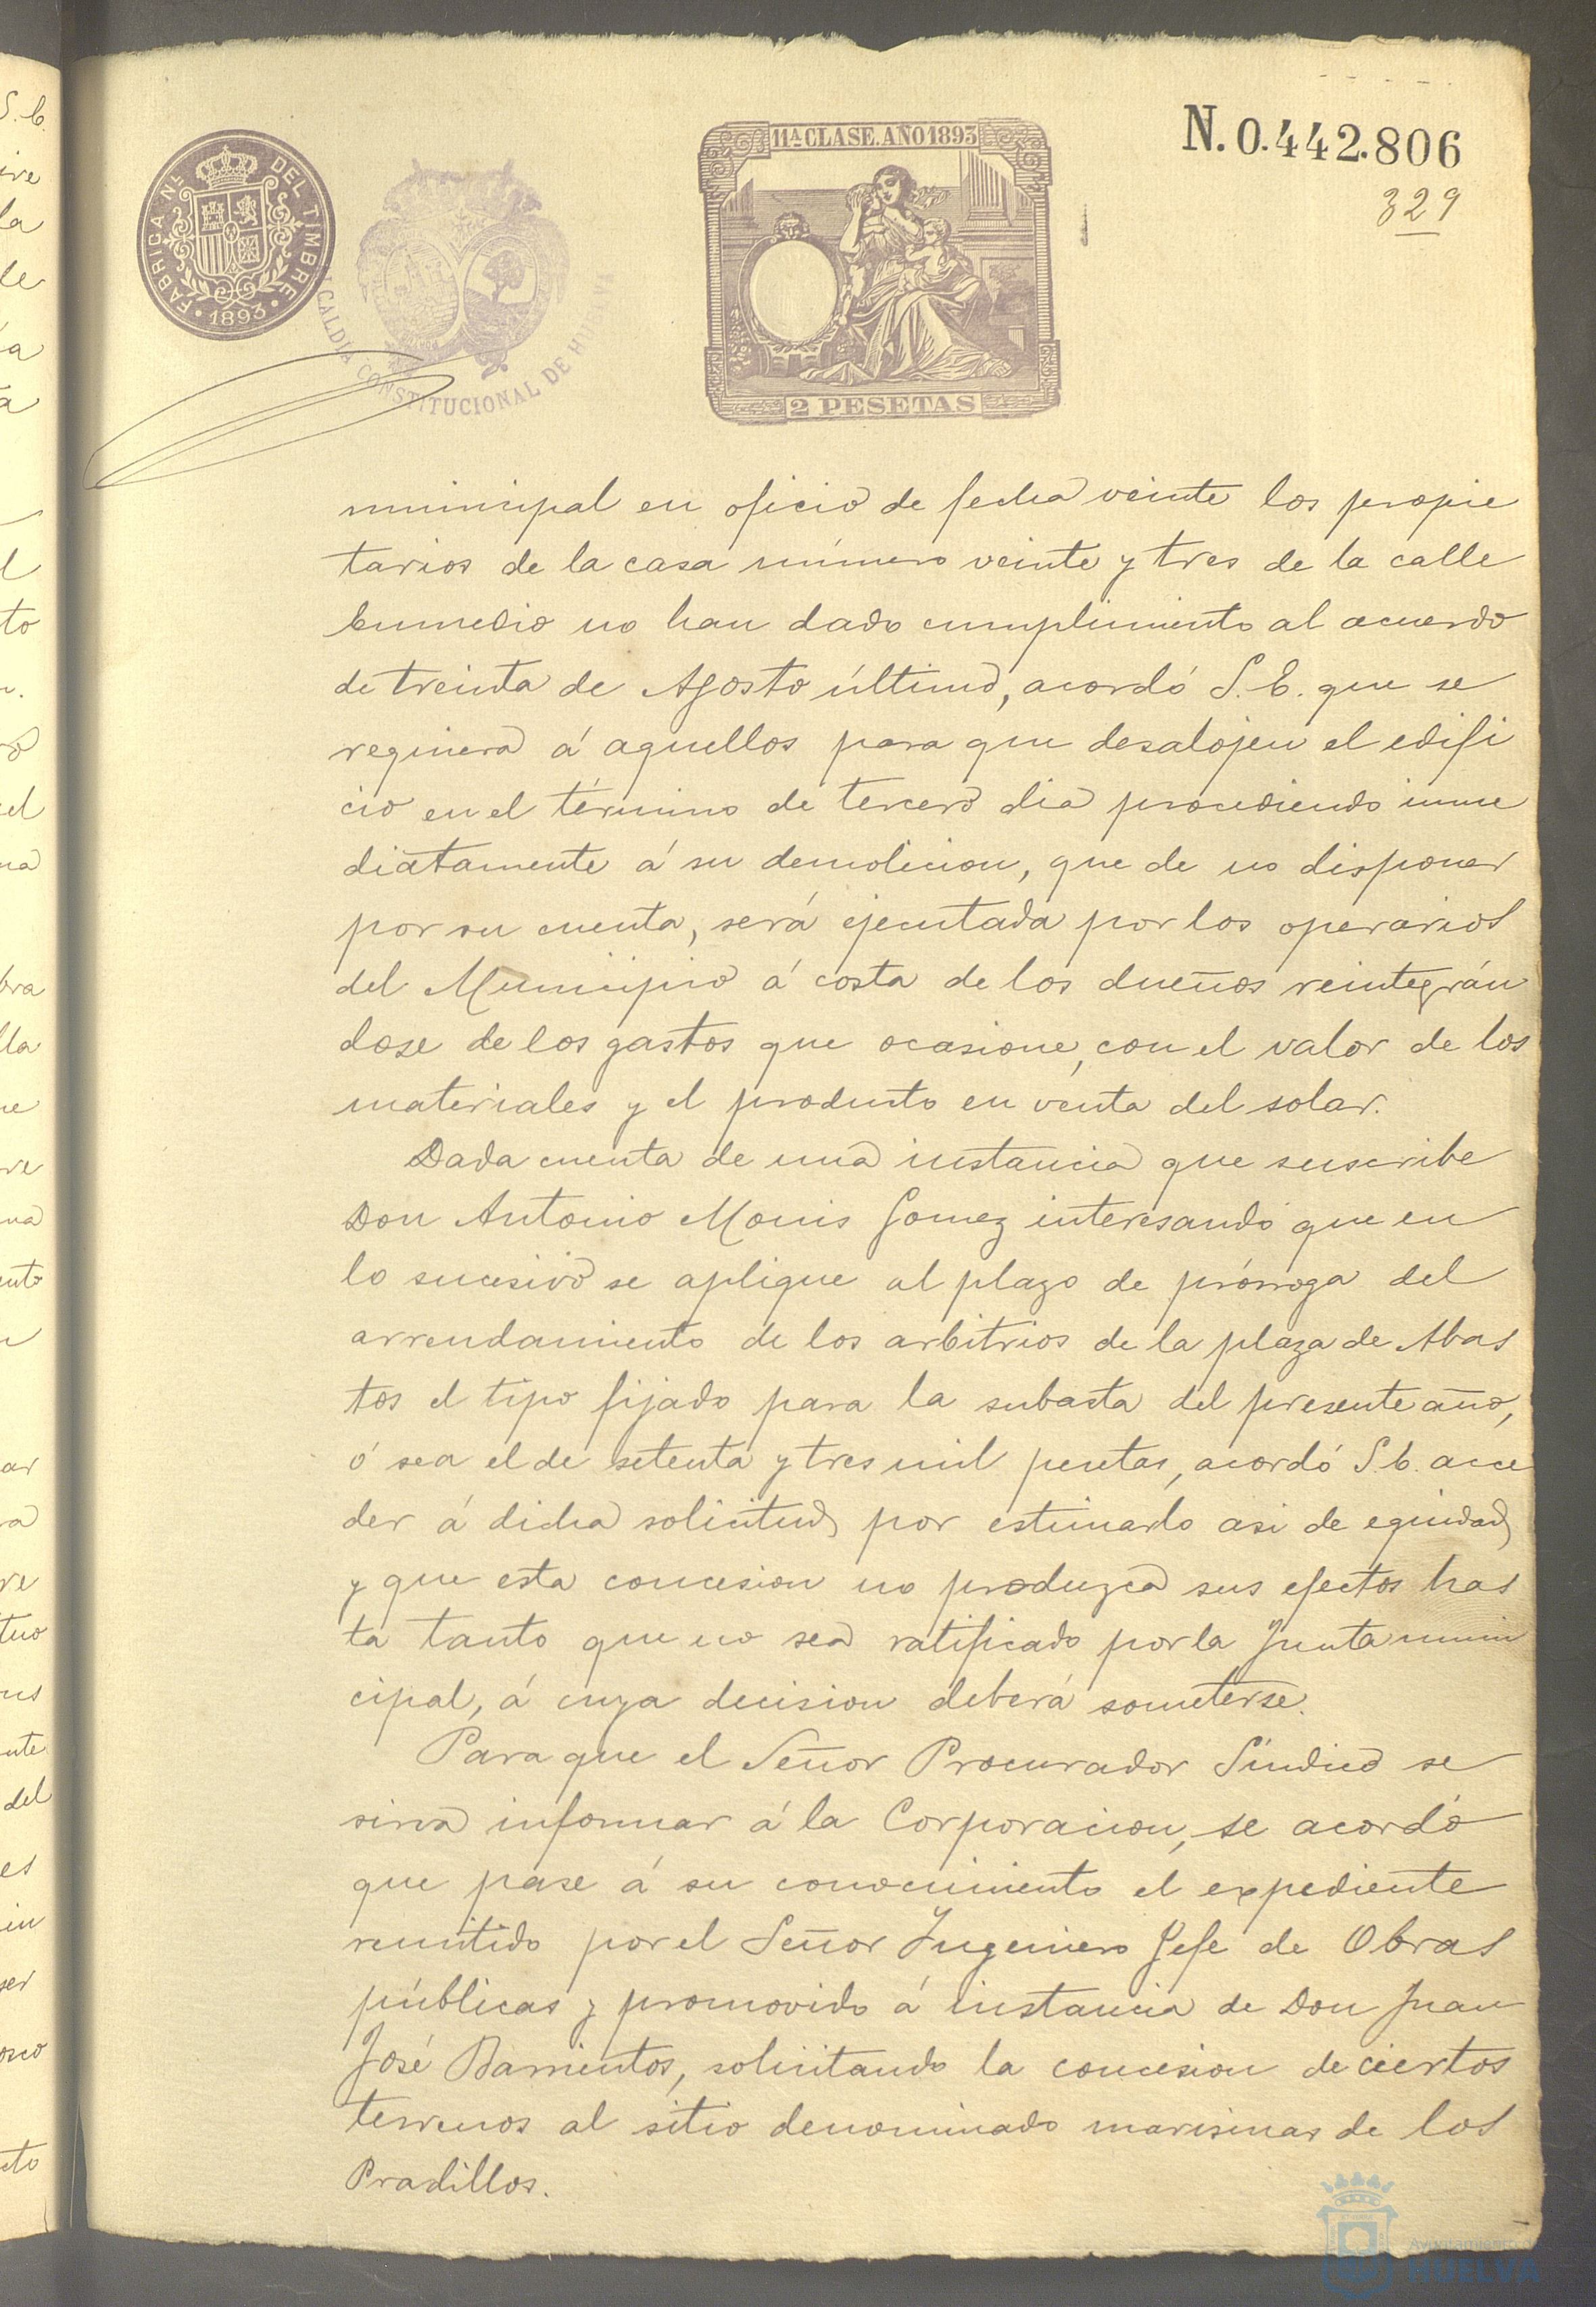 FABRICA NL. DEL TIMBRE
1893
ALCALDIA CONSTITUCIONAL DE HUELVA
11ª CLASE. AÑO 1893
2 PESETAS
N. 0.442.806
329
municipal en oficio de fecha veinte los propie
tarios de la casa número veinte y tres de la calle
Enmedio no han dado cumplimiento al acuerdo
de treinta de Agosto último, acordó S. E. que se
requiera á aquellos para que desalojen el edifi
cio en el término de tercero dia procediendo inme
diatamente á su demolicion, que de no disponer
por su cuenta, será ejecutada por los operarios
del Municipio á costa de los dueños reintegrán
dose de los gastos que ocasione, con el valor de los
materiales y el producto en venta del solar.
Dada cuenta de una instancia que suscribe
Don Antonio Monis Gomez interesando que en
lo sucesivo se aplique al plazo de prórroga del
arrendamiento de los arbitrios de la plaza de Abas
tos el tipo fijado para la subasta del presente año,
ó sea el de setenta y tres mil pesetas, acordó S. E. acce
der á dicha solicitud por estimarlo asi de equidad
y que esta concesion no produzca sus efectos has
ta tanto que no sea ratificado por la Junta muni
cipal, á cuya decision deberá someterse.
Para que el Señor Procurador Síndico se
sirva informar á la Corporacion, se acordó
que pase á su conocimiento el expediente
remitido por el Señor Ingeniero Jefe de Obras
públicas y promovido á instancia de Don Juan
José Barrientos, solicitando la concesion de ciertos
terrenos al sitio denominado marismas de los
Pradillos.
Ayuntamiento
HUELVA